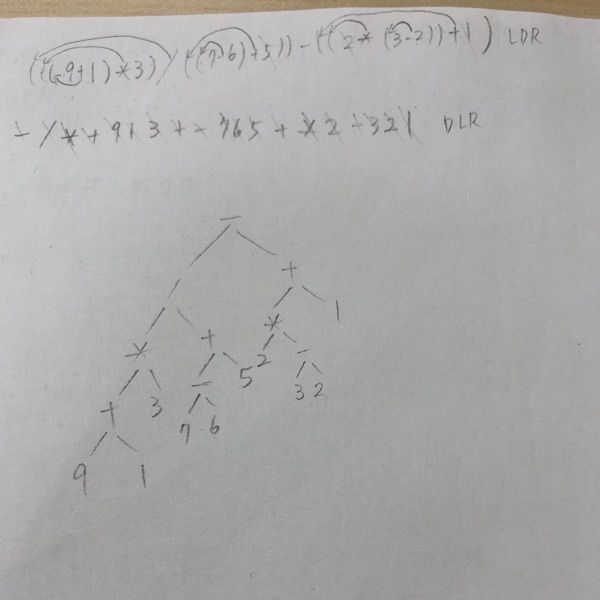 (((9+1)*3)/((7-6)+5))-((2*(3-2))+1) LDR
-/*+913+-765+*2-321 DLR
-
/ +
* + * 1
+ 3 - 5 2 -
7 6 3 2
9 1